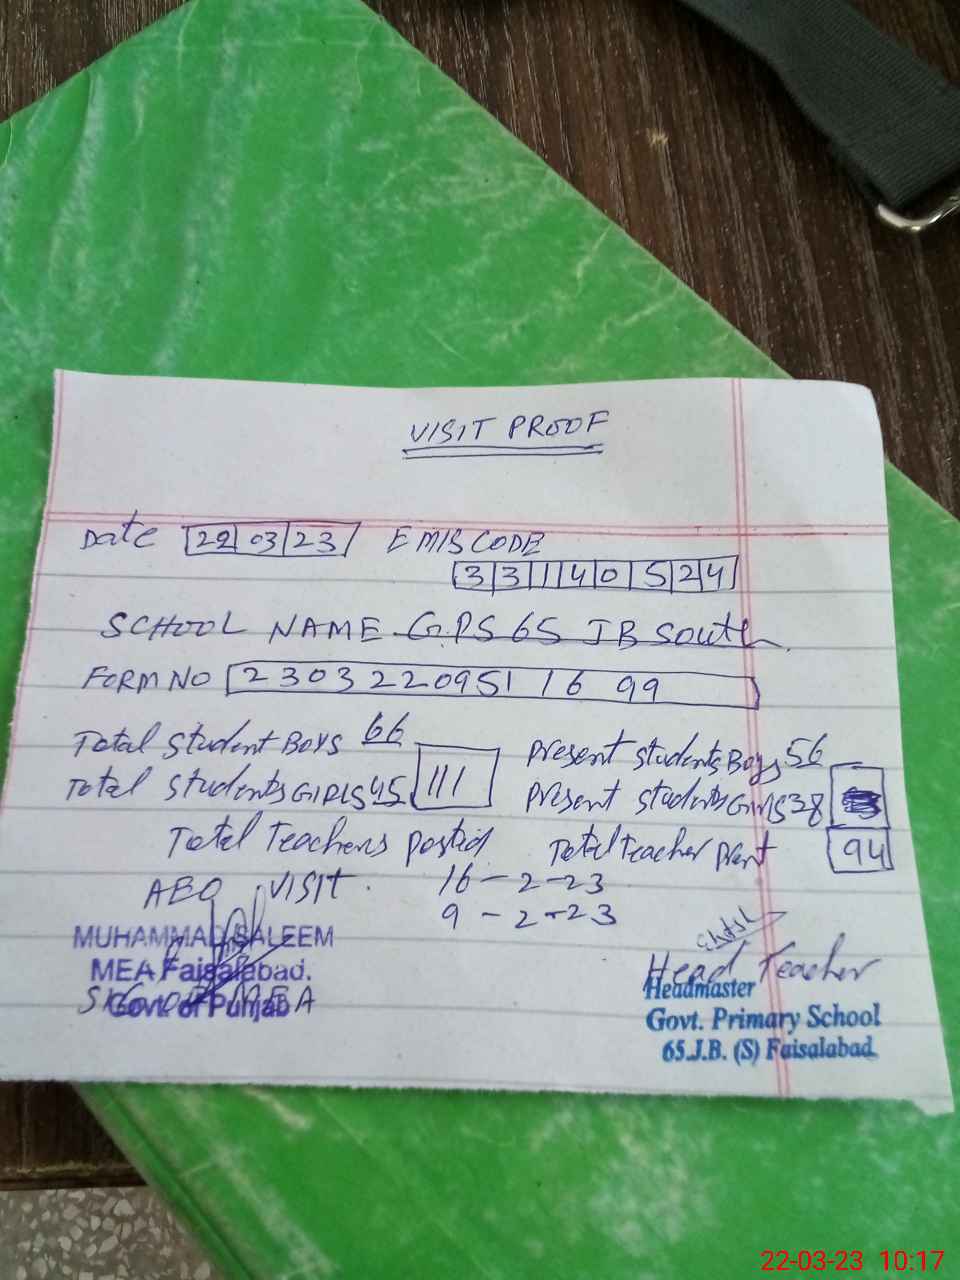 VISIT PROOF
Date 22 03 23 EMIS CODE
3 3 1 4 0 5 2 4
SCHOOL NAME G.P.S 65 JB South
FORM NO 2303220951 16 99
Total Student Boys 66 Present Students Boys 56
Total Students GIRLS 45 111 Present Students Girls 38
Total Teachers Posted Total Teacher Prent 94
AEO VISIT. 16 - 2 - 23
9 - 2 - 23
MUHAMMAD SALEEM
MEA Faisalabad. Head Teacher
Govt. of Punjab MEA Headmaster
Govt. Primary School
65.J.B. (S) Faisalabad.
22-03-23 10:17